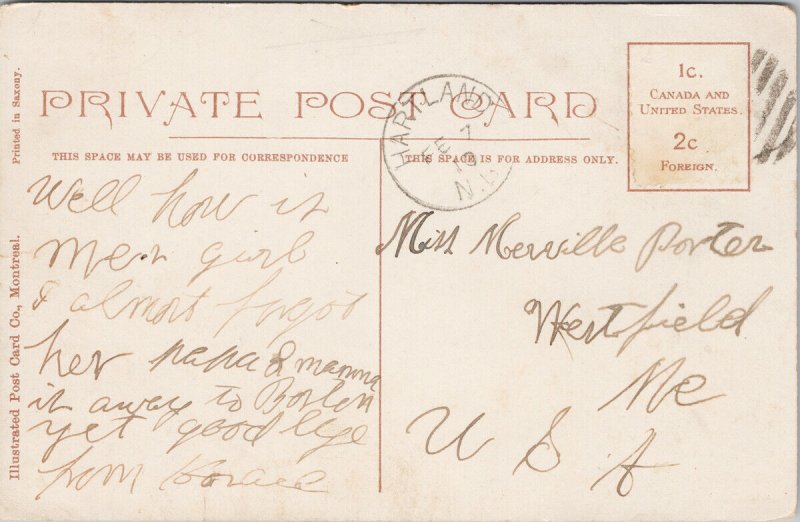 PRIVATE POST CARD
THIS SPACE MAY BE USED FOR CORRESPONDENCE
THIS SPACE IS FOR ADDRESS ONLY.
1c.
CANADA AND
UNITED STATES.
2c
FOREIGN.
HARTLAND
FE 7
10
N.B
Well how is
girl
I almost forgot
her papa & mamma
is away to Boston
yet good bye
from Horace
Miss Merville Porter
Westfield
Me
U S A
Illustrated Post Card Co., Montreal.
Printed in Saxony.